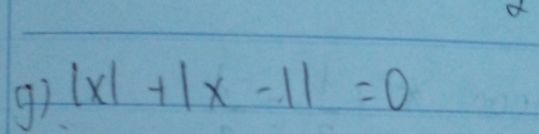 g) |x| + |x - 1| = 0